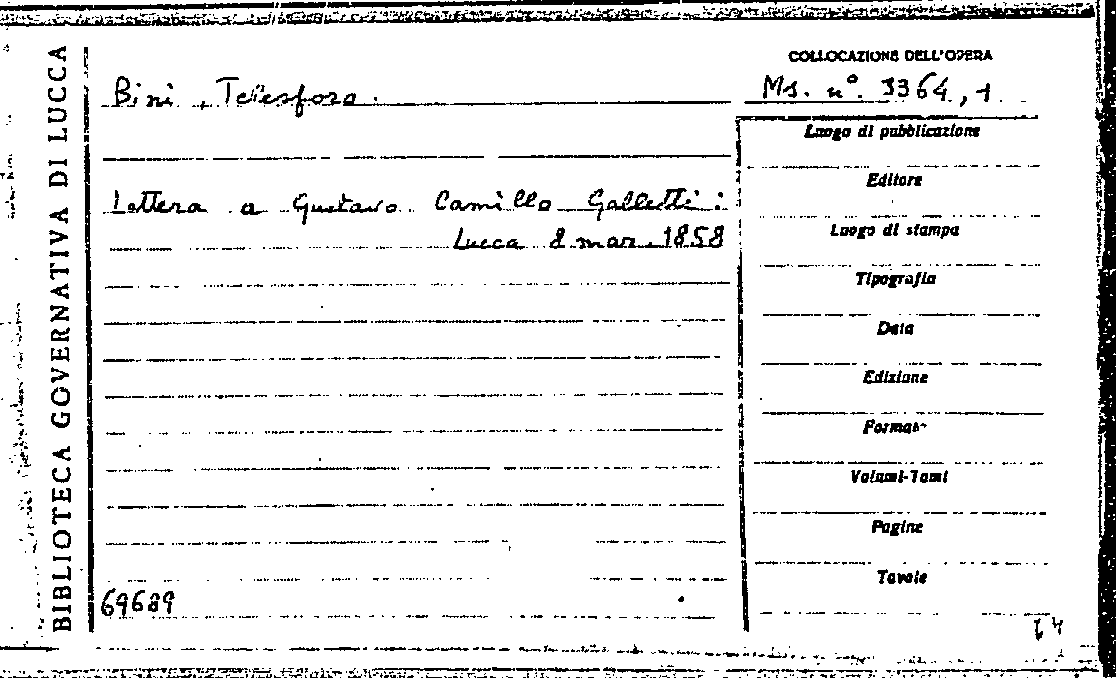 BIBLIOTECA GOVERNATIVA DI LUCCA
COLLOCAZIONE DELL'OPERA
Bini, Telesforo.
Ms. n°. 3364, 1
Luogo di pubblicazione
Editore
Lettera a Gustavo Camillo Galletti:
Lucca 8 mar. 1858
Luogo di stampa
Tipografia
Data
Edizione
Formato
Volumi-Tomi
Pagine
Tavole
69689